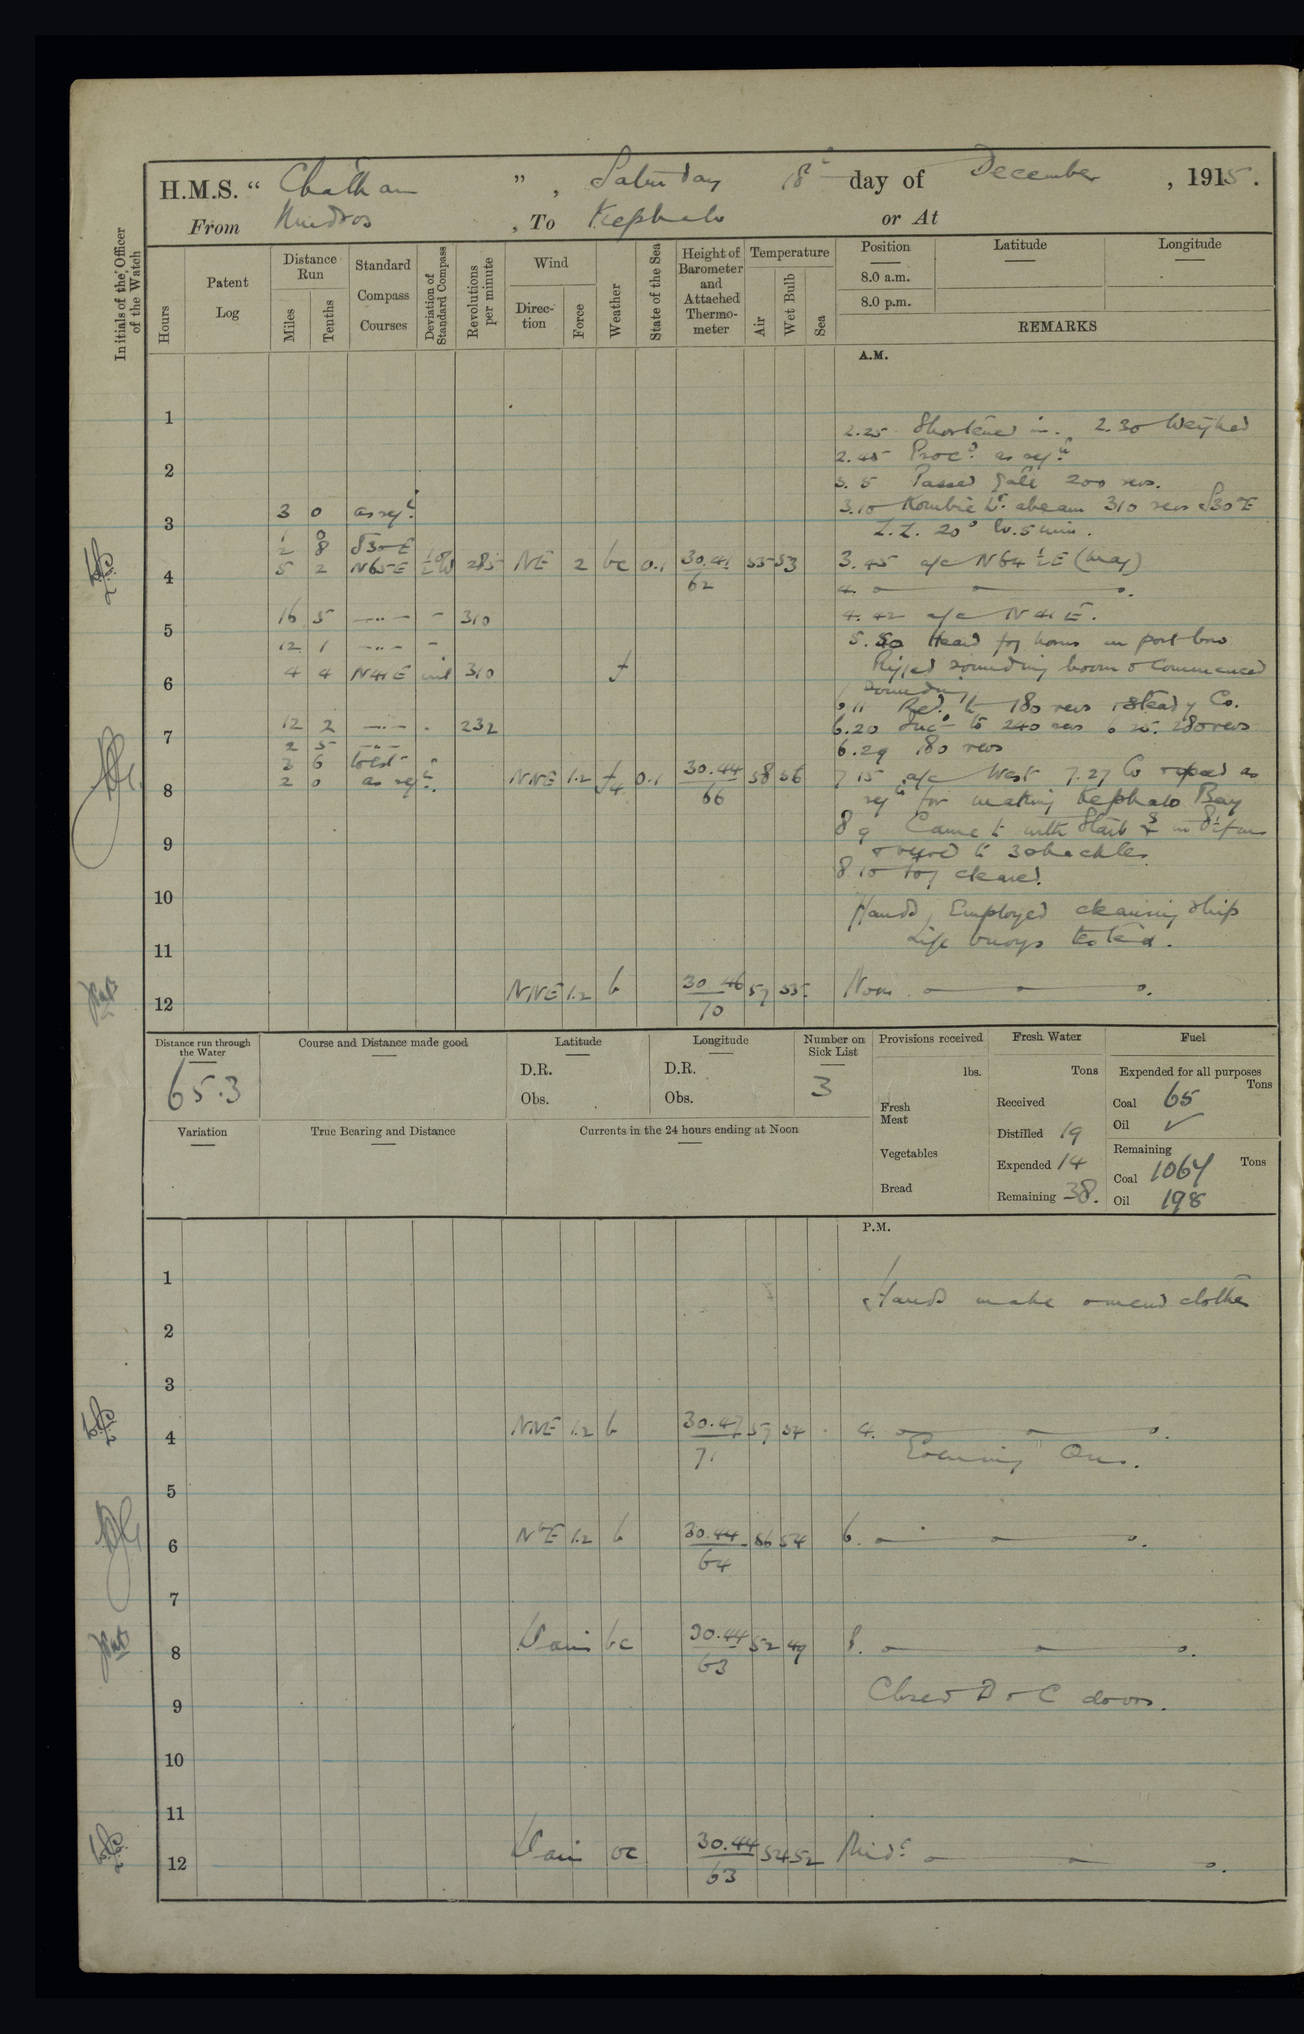 H.M.S. “ Chatham ” , Saturday 18th day of December , 1915.
From Mudros , To Kephalo or At
Initials of the Officer of the Watch
Hours
Patent Log
Distance Run
Miles
Tenths
Standard Compass Courses
Deviation of Standard Compass
Revolutions per minute
Wind
Direction
Force
Weather
State of the Sea
Height of Barometer and Attached Thermometer
Temperature
Air
Wet Bulb
Sea
Position
8.0 a.m.
8.0 p.m.
Latitude
Longitude
REMARKS
A.M.
1
2.25 Shortened in. 2.30 Weighed
2.45 Procd as reqte
2
3.5 Passed Gate 200 revs.
3 0 as reqte
3.10 Kombie Lt abeam 310 revs S30°E
3
1 0
Z.Z. 20° Iv. 5 min.
2 8 S30E
4 5 2 N65E 285 NE 2 bc 0.1 30.41 55 53
62
3.45 a/c N64½E (mag)
4.
16 5 —..— - 310
4.42 a/c N41E.
5
12 1 —..— -
5.50 Heard fog horns on port bow
4 4 N41E nil 310 f
Rigged sounding boom & Commenced
6
sounding
6.11 Red. to 180 revs steady Co.
12 2 —..— 232
6.20 Inc to 240 revs 6.25. 280 revs
7
2 5 —..—
6.29 180 revs
3 6 West
2 0 as reqte NNE 1.2 f 0.1 30.44 58 56
66
7.15 a/c West 7.27 Co & speed as
8
reqte for making Kephalo Bay
8.9 Came to with Stard
9
& veered to 3 shackles
8.10 Fog cleared.
10
Hands, Employed cleaning ship
11
Life buoys tested.
12 NNE 1.2 b 30.46 57 55
70
Noon
Distance run through the Water
65.3
Course and Distance made good
Latitude
D.R.
Obs.
Longitude
D.R.
Obs.
Number on Sick List
3
Variation
True Bearing and Distance
Currents in the 24 hours ending at Noon
Provisions received
lbs.
Fresh Meat
Vegetables
Bread
Fresh Water
Tons
Received
Distilled 19
Expended 14
Remaining 38.
Fuel
Expended for all purposes
Tons
Coal 65
Oil ✓
Remaining
Tons
Coal 1064
Oil 198
P.M.
1
Hands make & mend clothes
2
3
4 NNE 1.2 b 30.47 57 54
71
4.
Evening Qrs.
5
6 NbE 1.2 b 30.44 56 54
64
6.
7
8 Vari bc 30.44 52 49
63
8.
9
Closed D & C doors.
10
11
12 Vari oc 30.44 54 52
63
Midt